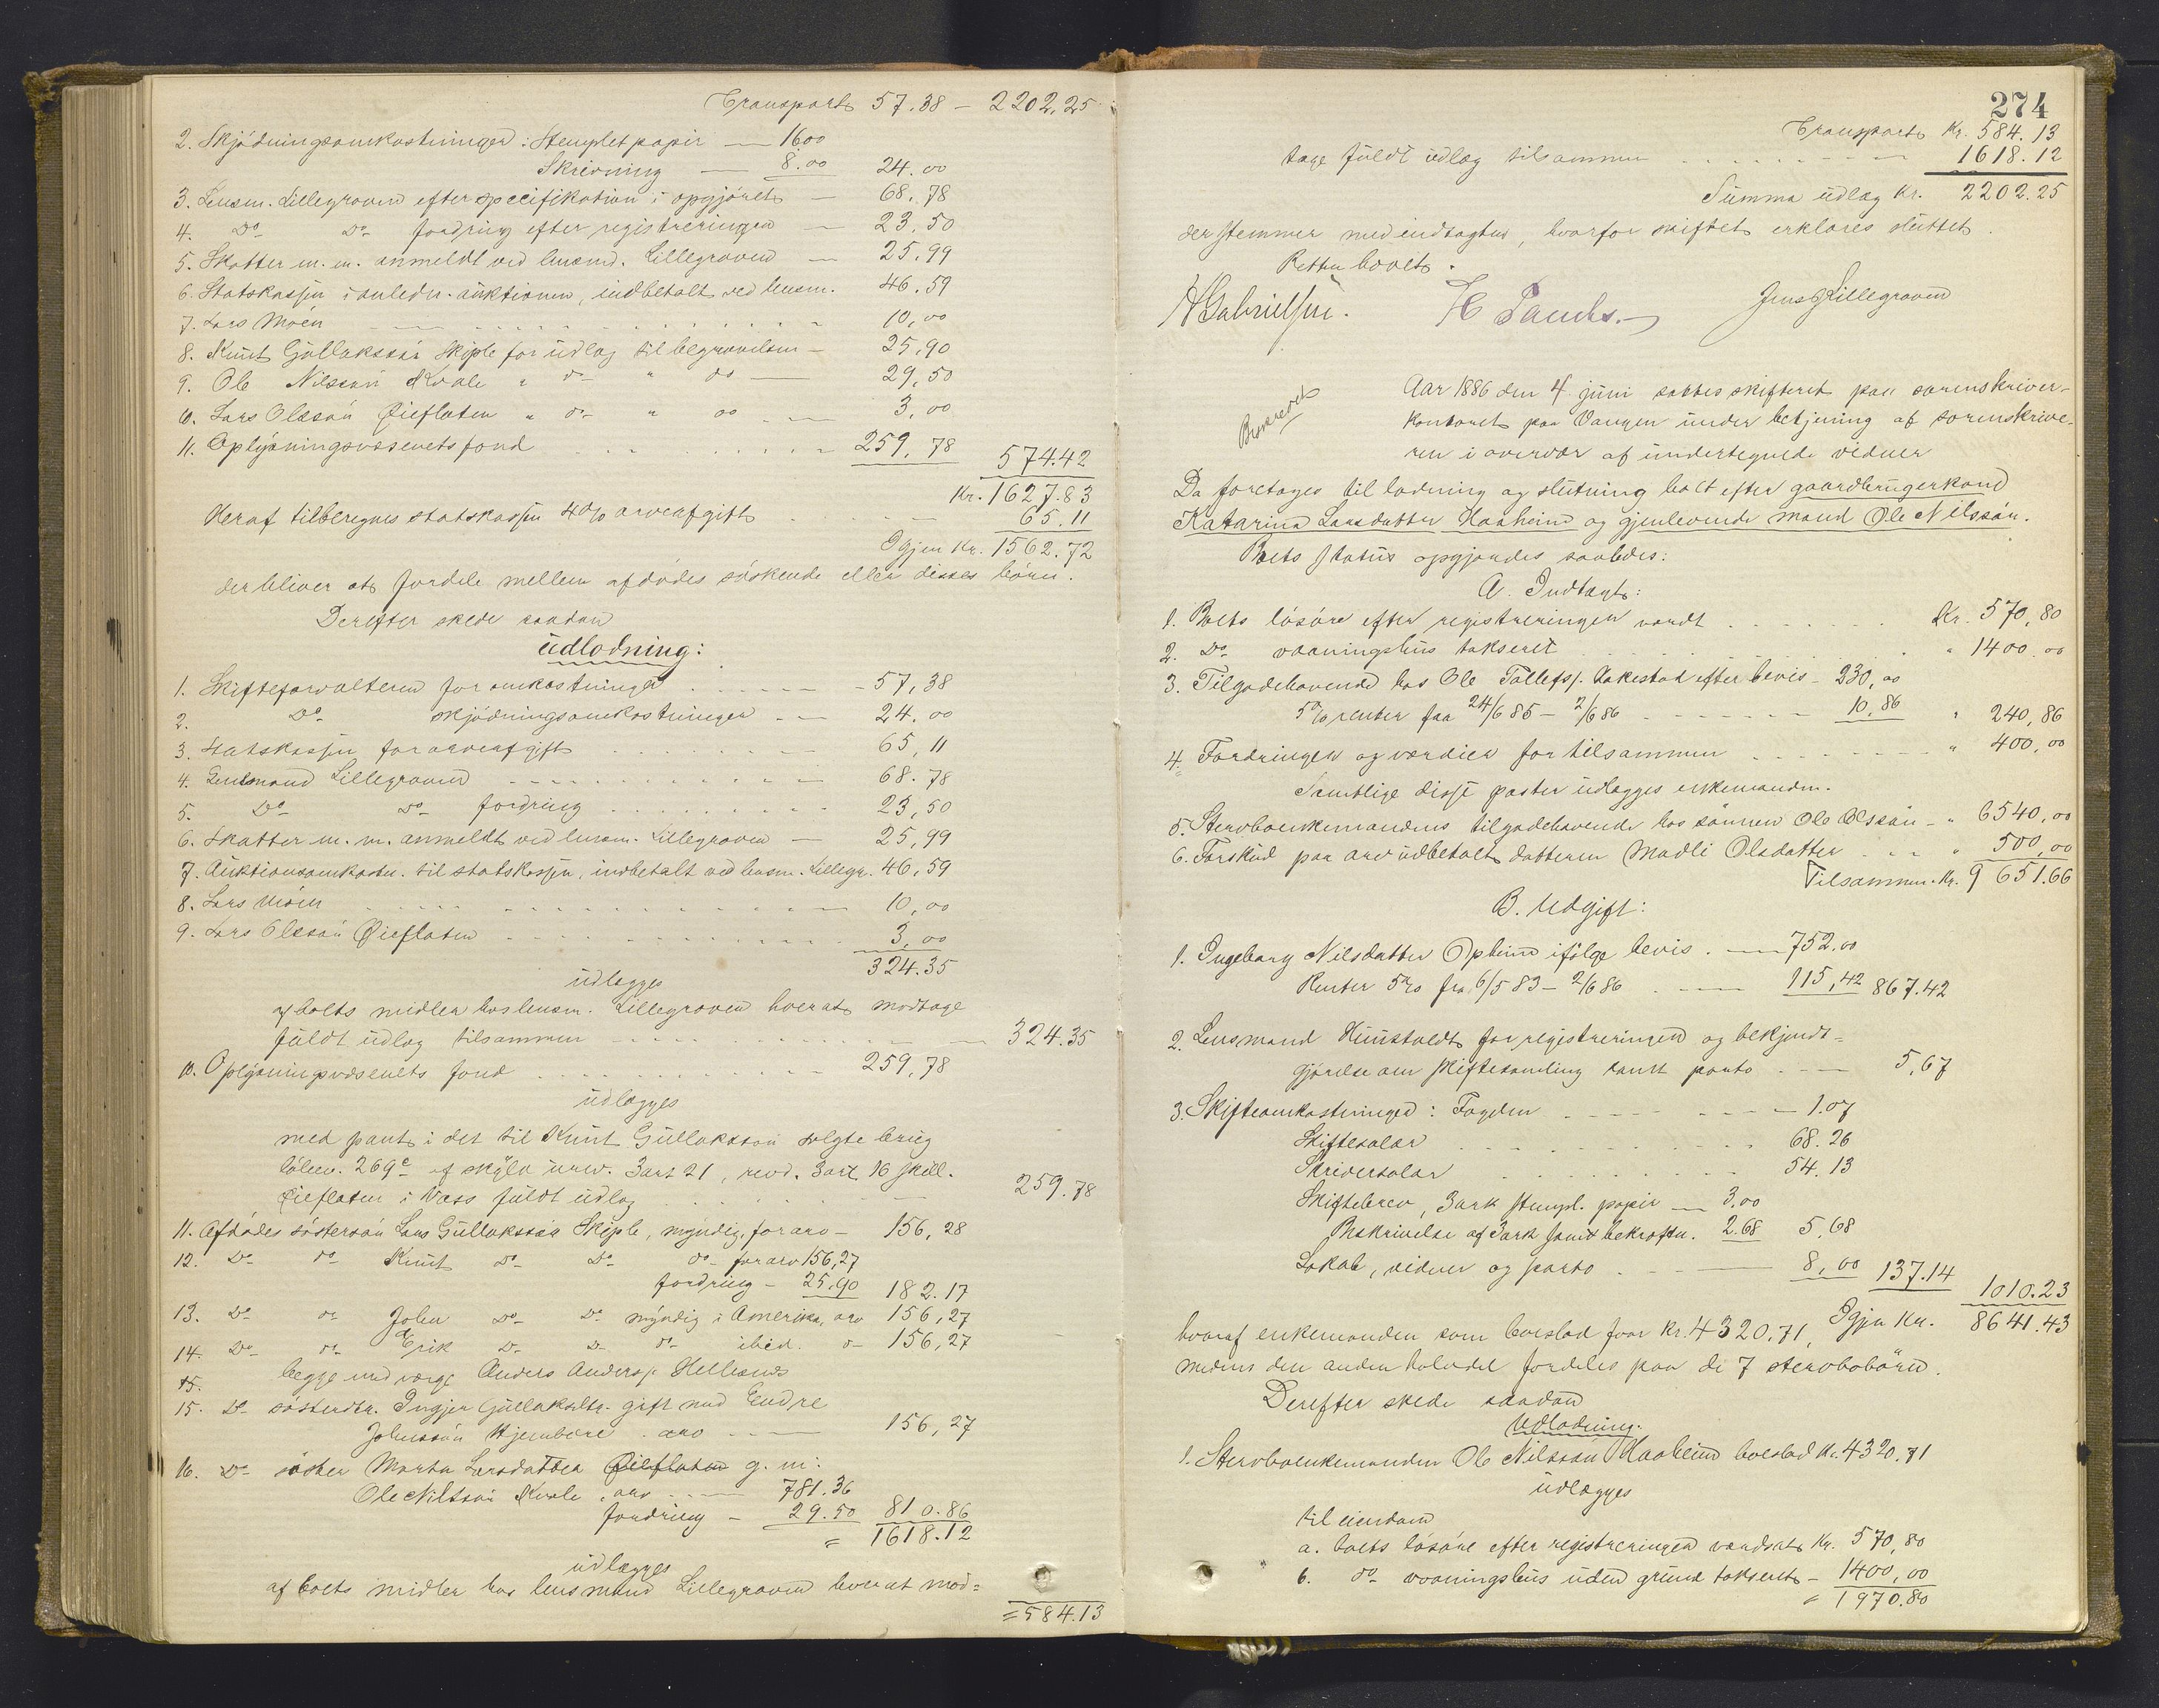 Transport 57.38 - 2202,25
2. Skjödningsomkostninger: Stemplet papir — 16.00
Skrivning — 8.00 24.00
3. Lensm. Lillegraven efter specifikation i opgjöret — 68.78
4. Do Do fordring efter registreringen — 23.50
5. Skatter m. m. anmeldt ved lensmd. Lillegraven — 25,99
6. Statskassen i anledn. auktionen, indbetalt ved lensm. 46.59
7. Lars Moen 10,00
8. Knut Gullakssön Skiple for udlæg til begravelsen — 25,90
9. Ole Nilssön Kvale " do " do — 29,50
10. Lars Olssön Øieflaten " do " do — 3,00
11. Oplysningsvæsenets fond 259,78 574.42
Kr. 1627.83
Heraf tilberegnes statskassen 4% arveafgift 65.11
Igjen Kr. 1562.72
der bliver at fordele mellem afdödes söskende eller disses börn.
Derefter skede saadan
Udlodning:
1. Skifteforvalteren for omkostninger - 57,38
2. Do skjödningsomkostninger - 24.00
3. Statskassen for arveafgift 65,11
4. Lensmand Lillegraven 68.78
5. Do Do fordring 23,50
6. Skatter m. m. anmeldt ved lensm. Lillegraven — 25,99
7. Auktionsomkostn. til statskassen, indbetalt ved lensm. Lillegr. 46,59
8. Lars Moen 10,00
9. Lars Olssön Øieflaten 3,00
324.35
udlægges
af boets midler hos lensm. Lillegraven hver at modtage
fuldt udlæg tilsammen 324.35
10. Oplysningsvæsenets fond 259,78
udlægges
med pant i det til Knut Gullakssön solgte brug
löbn. 269c af skyld urev. 3 ort 21, revd. 3 ort 16 skill.
Øieflaten i Voss fuldt udlæg 259.78
11. Afdödes söstersön Lars Gullakssön Skiple, myndig, for arv - 156,28
12. Do do Knut Do Do do for arv 156,27
fordring - 25.90 182.17
13. Do do John Do Do myndig i Amerika, arv 156,27
14. Do do Erik Do Do do ibid. do 156,27
15. begge med værge Anders Anders. Hellesnes
15. Do sösterdtr. Ingjer Gullaksdtr. gift med Endre
Johnssön Kjembare. arv 156,27
16. Do söster Marta Larsdatter Øieflaten g. m.
Ole Nilssön Kvale, arv 781.36
fordring - 29.50 810.86
= 1618.12
udlægges
af boets midler hos lensmand Lillegraven hver at mod=
= 584.13
274
Transport Kr. 584.13
tage fuldt udlæg tilsammen 1618.12
Summa udlæg Kr. 2202.25
der stemmer med indtægten, hvorfor skiftet erklæres sluttet.
Retten hævet.
H Gabrielsen. Jens Lillegraven
Aar 1886 den 4 juni sattes skifteret paa sorenskriver-
kontoret paa Vangen under betjening af sorenskrive-
ren i overvær af undertegnede vidner
Da foretoges til lodning og slutning boet efter gaardbrugerkone
Katarina Larsdatter Haaheim og gjenlevende mand Ole Nilssön.
Boets status opgjordes saaledes:
A. Indtægt:
1. Boets lösöre efter registreringen værdt Kr. 570,80
2. Do vaaningshus takseret " 1400.00
3. Tilgodehavende hos Ole Tollefs. Lakestad efter bevis - 230,00
5% renter fra 24/6 85 - 2/6 86 10,86 " 240,86
4. Fordringer og værdier for tilsammen " 400,00
Samtlige disse poster udlægges enkemanden.
5. Stervboenkemandens tilgodehavende hos sönnen Ole Olssön - " 6540,00
6. Forskud paa arv udbetalt datteren Madli Olsdatter " 500,00
Tilsammen Kr. 9651.66
B. Udgift:
1. Ingeborg Nilsdatter Opheim ifölge bevis. — 752.00
Renter 5% fra 6/5 83 - 2/6 86 115,42 867.42
2. Lensmand Hunstvedt for registreringen og bekjendt=
gjörelse om skiftesamling samt porto 5,67
3. Skifteomkostninger: Fogden 1.07
Skiftesalær 68.26
Skriversalær 54.13
Skiftebrev, 3 ark stempl. papir — 3,00
Beskrivelse af 3 ark samt bekræftn. 2.68 5,68
Lokale, vidner og porto 8,00 137.14 1010.23
Igjen Kr. 8641.43
hvoraf enkemanden som boeslod faar kr. 4320,71,
medens den anden halvdel fordeles paa de 7 stervbobörn.
Derefter skede saadan
Udlodning.
1. Stervboenkemanden Ole Nilssön Haaheim boeslod kr. 4320,71
udlægges
til eiendom
a. boets lösöre efter registreringen værdsat Kr. 570,80
b. do vaaningshus uden grund takseret - 1400,00
= 1970.80